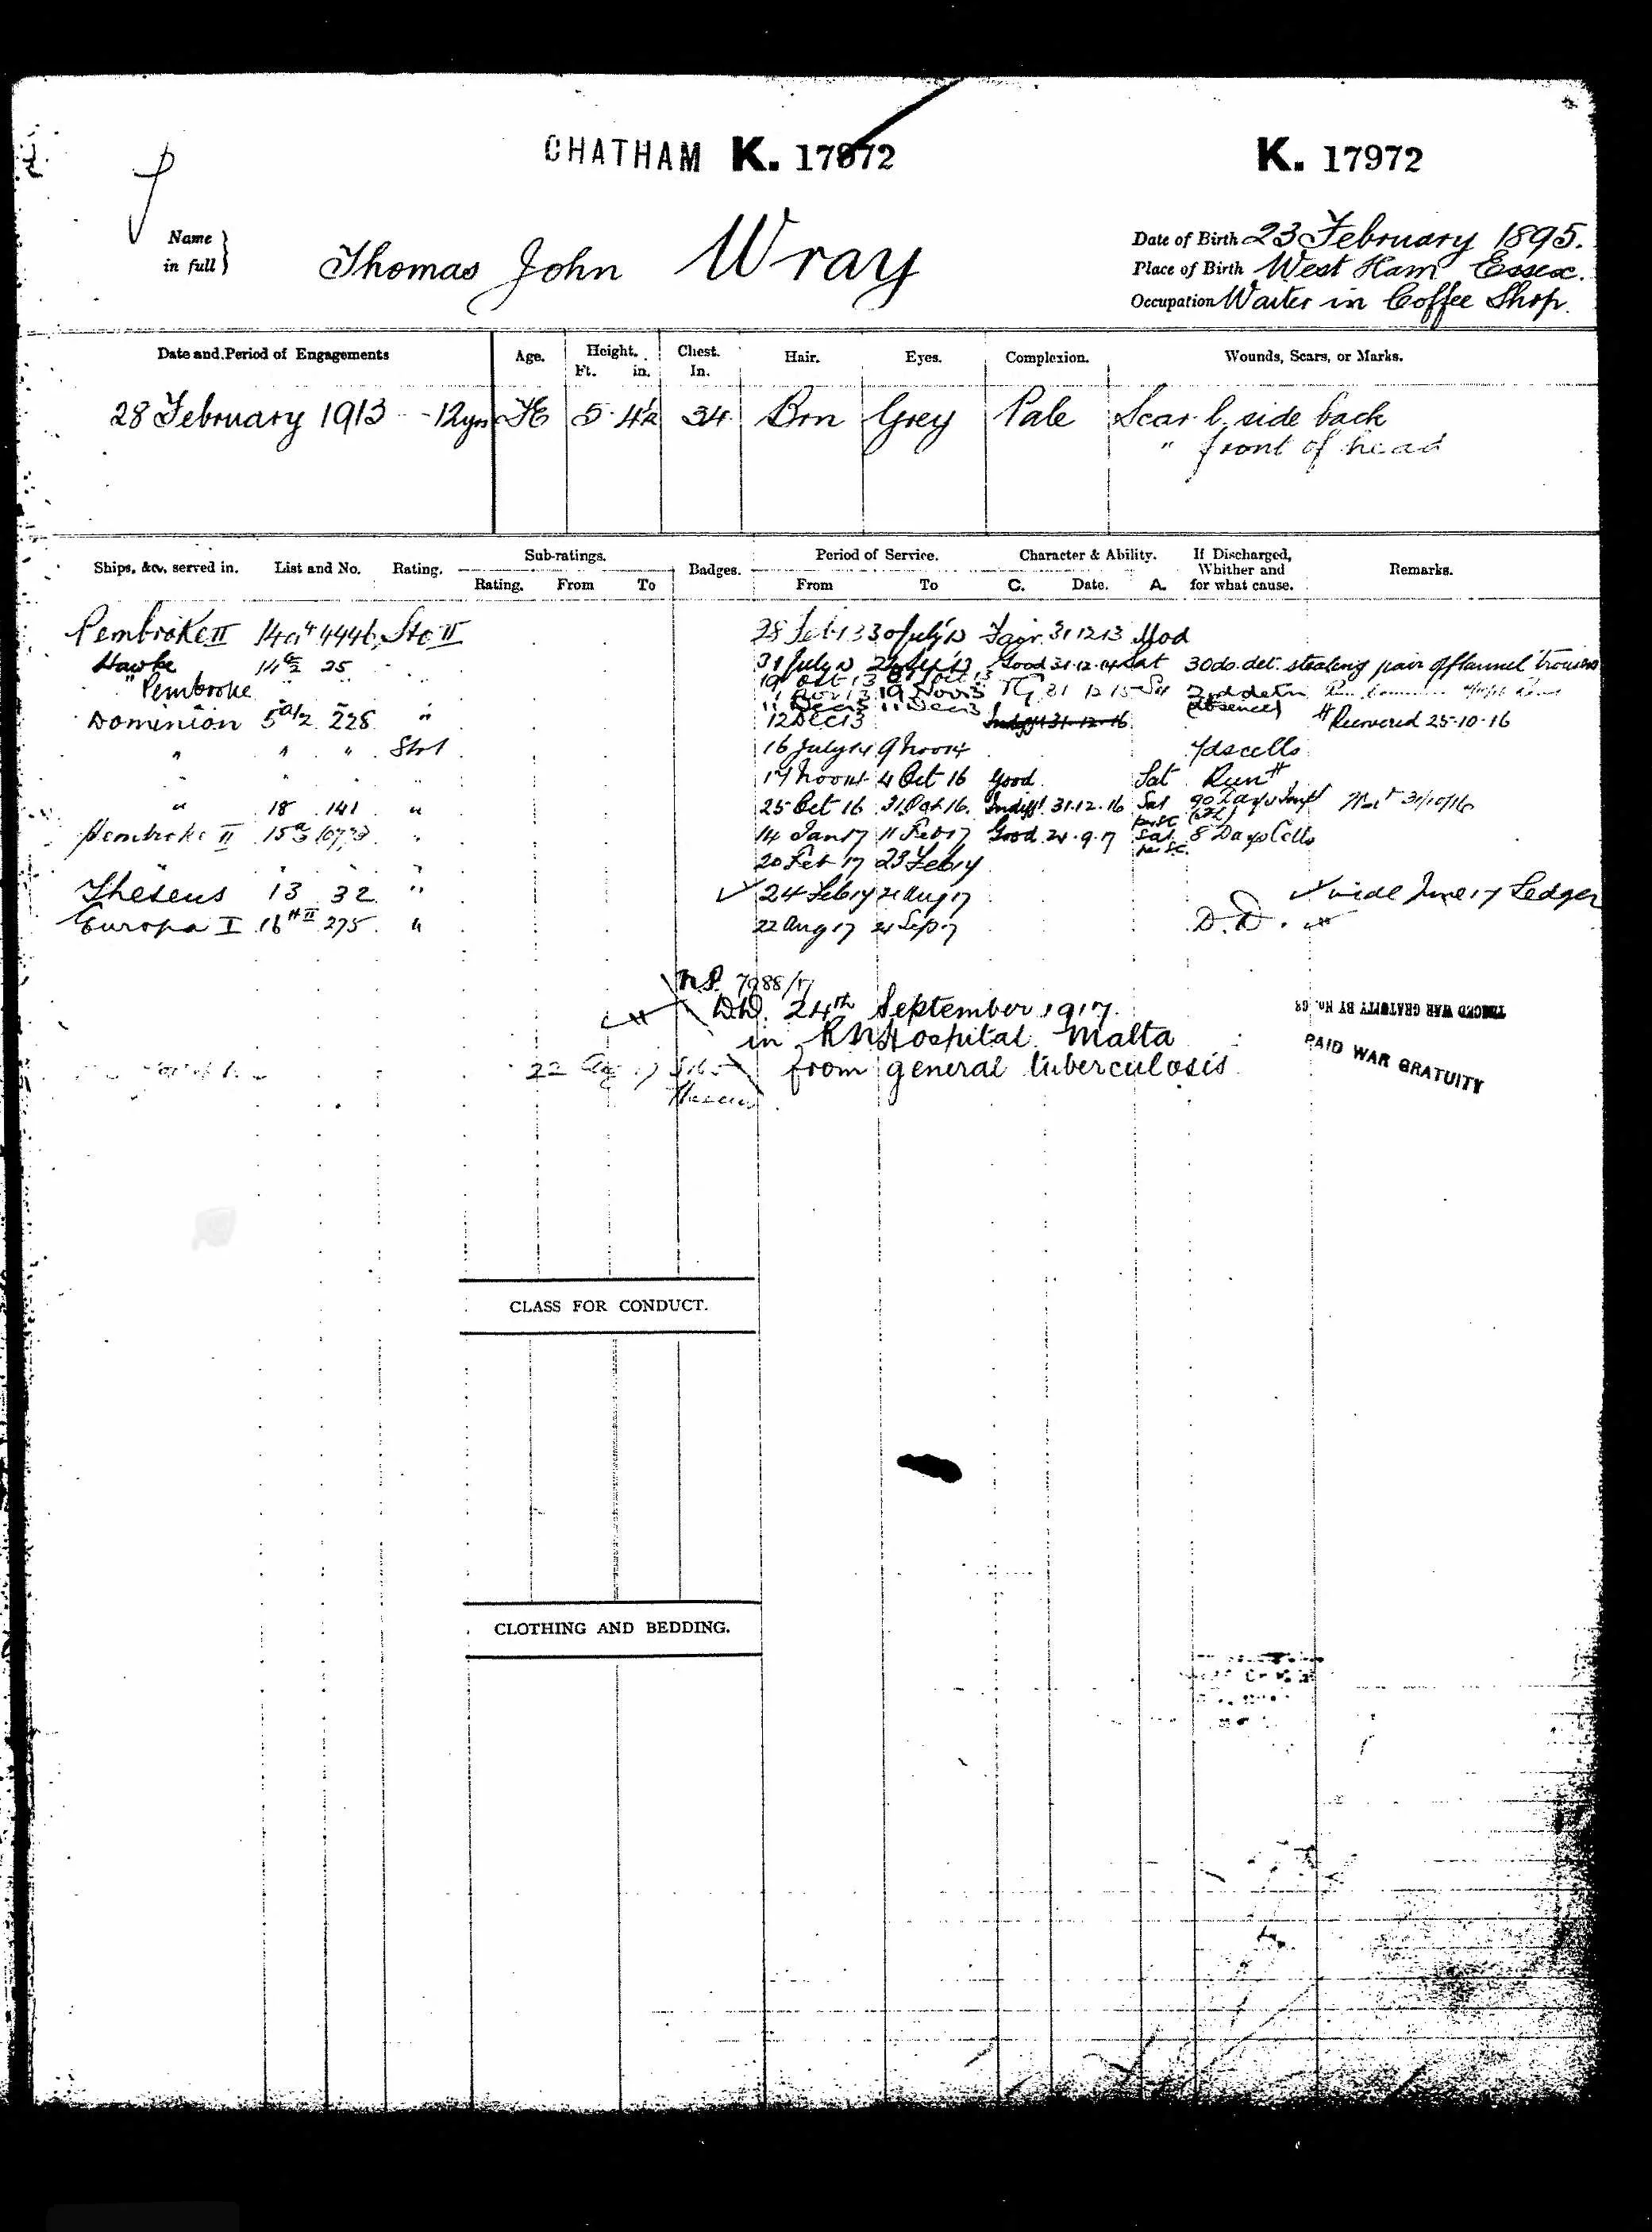 CHATHAM K. 17972 K. 17972
Name in full } Thomas John Wray
Date of Birth 23 February 1895.
Place of Birth West Ham Essex.
Occupation Waiter in Coffee Shop.
Date and Period of Engagements Age. Height. Ft. in. Chest. In. Hair. Eyes. Complexion. Wounds, Scars, or Marks.
28 February 1913 - 12 yrs 5 4½ 34 Brn Grey Pale Scar l. side back
" front of head
Ships, &c., served in. List and No. Rating. Sub-ratings. Rating. From To Badges. Period of Service. From To Character & Ability. C. Date. A. If Discharged, Whither and for what cause. Remarks.
Pembroke II 4446 Sto II 28 Feb 13 30 July 13 Fair 31 12 13 Mod
Hawke 25 31 July 13 Good 31.12.14 Sat 30 da. det. stealing pair of flannel trousers
" Pembroke 19 Nov 13 31 12 15 2nd detn (absence)
11 Dec 13
Dominion 228 " 12 Dec 13 Indiff 31-12-16 # Recovered 25-10-16
" " " Sto I 16 July 14 9 Nov 14 7 ds cells
" " " 17 Nov 14 4 Oct 16 Good Sat Run #
" 18 141 " 25 Oct 16 31 Oct 16 Indifft 31.12.16 Sat 90 Days Impt 31/10/16
Pembroke II " 14 Jan 17 11 Feb 17 Good 24.9.17 Sat 8 Days Cells
" " " 20 Feb 17 23 Feb 17
Theseus 13 32 " 24 Feb 17 21 Aug 17 vide June 17 Ledger
Europa I 275 " 22 Aug 17 21 Sep 17 D.D.
N.P. 7088/17
DD. 24th September 1917
in RN Hospital Malta
from general tuberculosis
TRACED WAR GRATUITY BY No. 68
PAID WAR GRATUITY
22 Aug 17
CLASS FOR CONDUCT.
CLOTHING AND BEDDING.